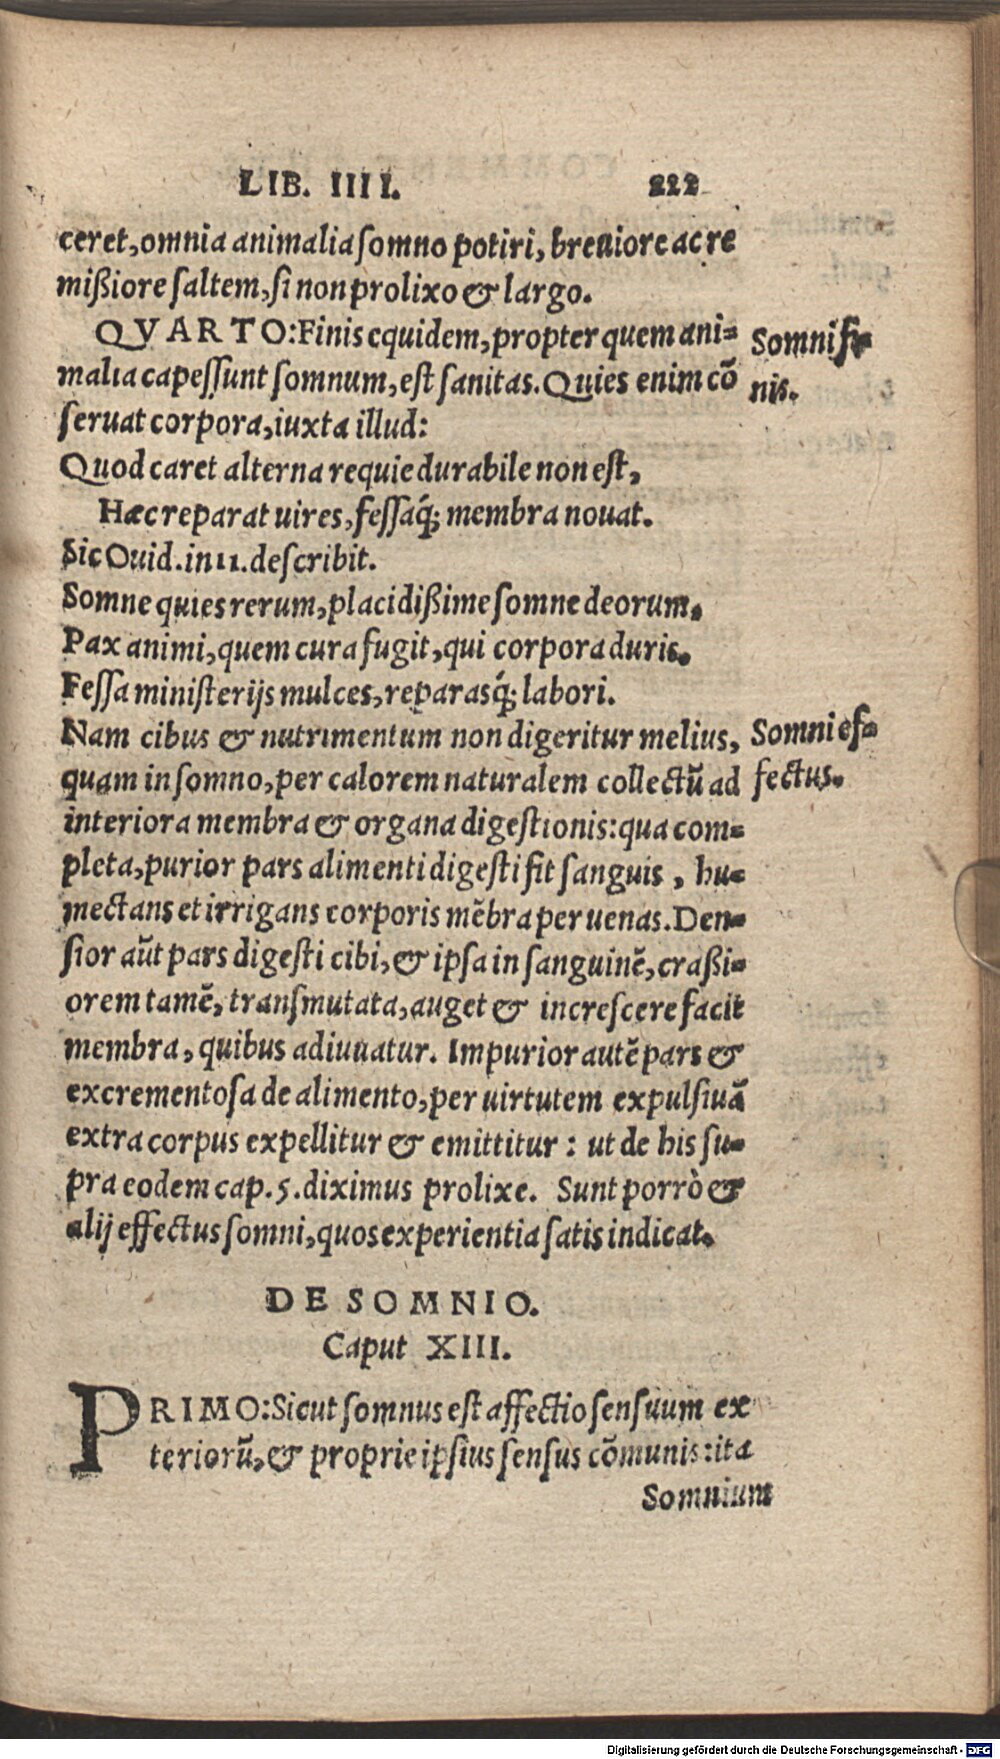 LIB. IIII. 222
ceret, omnia animalia somno potiri, breuiore ac re
mißiore saltem, si non prolixo & largo.
QVARTO: Finis equidem, propter quem ani-
malia capessunt somnum, est sanitas. Quies enim cō
seruat corpora, iuxta illud:
Somni fi-
nis.
Quod caret alterna requie durabile non est,
Hæc reparat uires, fessaq́; membra nouat.
Sic Ouid. in 11. describit.
Somne quies rerum, placidißime somne deorum,
Pax animi, quem cura fugit, qui corpora duris,
Fessa ministerijs mulces, reparasq́; labori.
Nam cibus & nutrimentum non digeritur melius,
quam in somno, per calorem naturalem collectū ad
Somni ef-
fectus.
interiora membra & organa digestionis: qua com-
pleta, purior pars alimenti digesti fit sanguis, hu-
mectans et irrigans corporis mēbra per uenas. Den-
sior aūt pars digesti cibi, & ipsa in sanguinē, craßi-
orem tamē, transmutata, auget & increscere facit
membra, quibus adiuuatur. Impurior autē pars &
excrementosa de alimento, per uirtutem expulsiuā
extra corpus expellitur & emittitur: ut de his su-
pra eodem cap. 5. diximus prolixe. Sunt porrò &
alij effectus somni, quos experientia satis indicat.
DE SOMNIO.
Caput XIII.
PRIMO: Sicut somnus est affectio sensuum ex
teriorū, & proprie ipsius sensus cōmunis: ita
Somnium
Digitalisierung gefördert durch die Deutsche Forschungsgemeinschaft - DFG